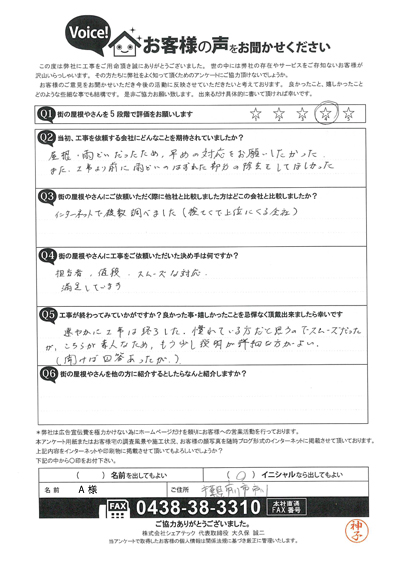 Voice!
お客様の声をお聞かせください
この度は弊社に工事をご用命頂き誠にありがとうございました。世の中には弊社の存在やサービスをご存知ないお客様が
沢山いらっしゃいます。その方たちに弊社をよく知って頂くためのアンケートにご協力頂けないでしょうか。
お客様のご意見をお聞かせいただき今後の活動に反映させていただきたいと考えております。良かったこと、嬉しかったこと
どのような些細な事でも結構です。是非ご協力お願い致します。出来るだけ具体的に書いて頂ければ幸いです。
Q1 街の屋根やさんを5段階で評価をお願いします
Q2 当初、工事を依頼する会社にどんなことを期待されていましたか？
屋根・雨どいだったため、早めの対応をお願いしたかった。
また、工事より前に雨どいのはずれた部分の除去をしてほしかった
Q3 街の屋根やさんにご依頼いただく際に他社と比較しました方はどこの会社と比較しましたか？
インターネットで複数調べました（検索して上位にくる会社）
Q4 街の屋根やさんに工事をご依頼いただいた決め手は何ですか？
担当者、値段、スムーズな対応。
満足しています
Q5 工事が終わってみていかがですか？良かった事・嬉しかったことを忌憚なく頂戴出来ましたら幸いです
速やかに工事は終了した。慣れている方だと思うのでスムーズだった
が、こちらが素人なため、もう少し説明が詳細な方がよい。
（聞けば回答あったが。）
Q6 街の屋根やさんを他の方に紹介するとしたらなんと紹介しますか？
＊弊社は広告宣伝費を極力かけない為にホームページだけを頼りにお客様への営業活動を行っております。
本アンケート用紙またはお客様宅の調査風景や施工状況、お客様の顔写真を随時ブログ形式のインターネットに掲載させて頂いております。
上記内容をインターネットや印刷物に掲載させて頂いてもよろしいでしょうか？
下記の中から〇印をお付下さい。
（　）名前を出してもよい （○）イニシャルなら出してもよい
名前 A様 ご住所 千葉県市川市
FAX 0438-38-3310 本社直通 FAX番号
ご協力ありがとうございました。
株式会社シェアテック 代表取締役 大久保 誠二
当アンケートで取得したお客様の個人情報は関係法規に基づき厳正に管理いたします。
神子